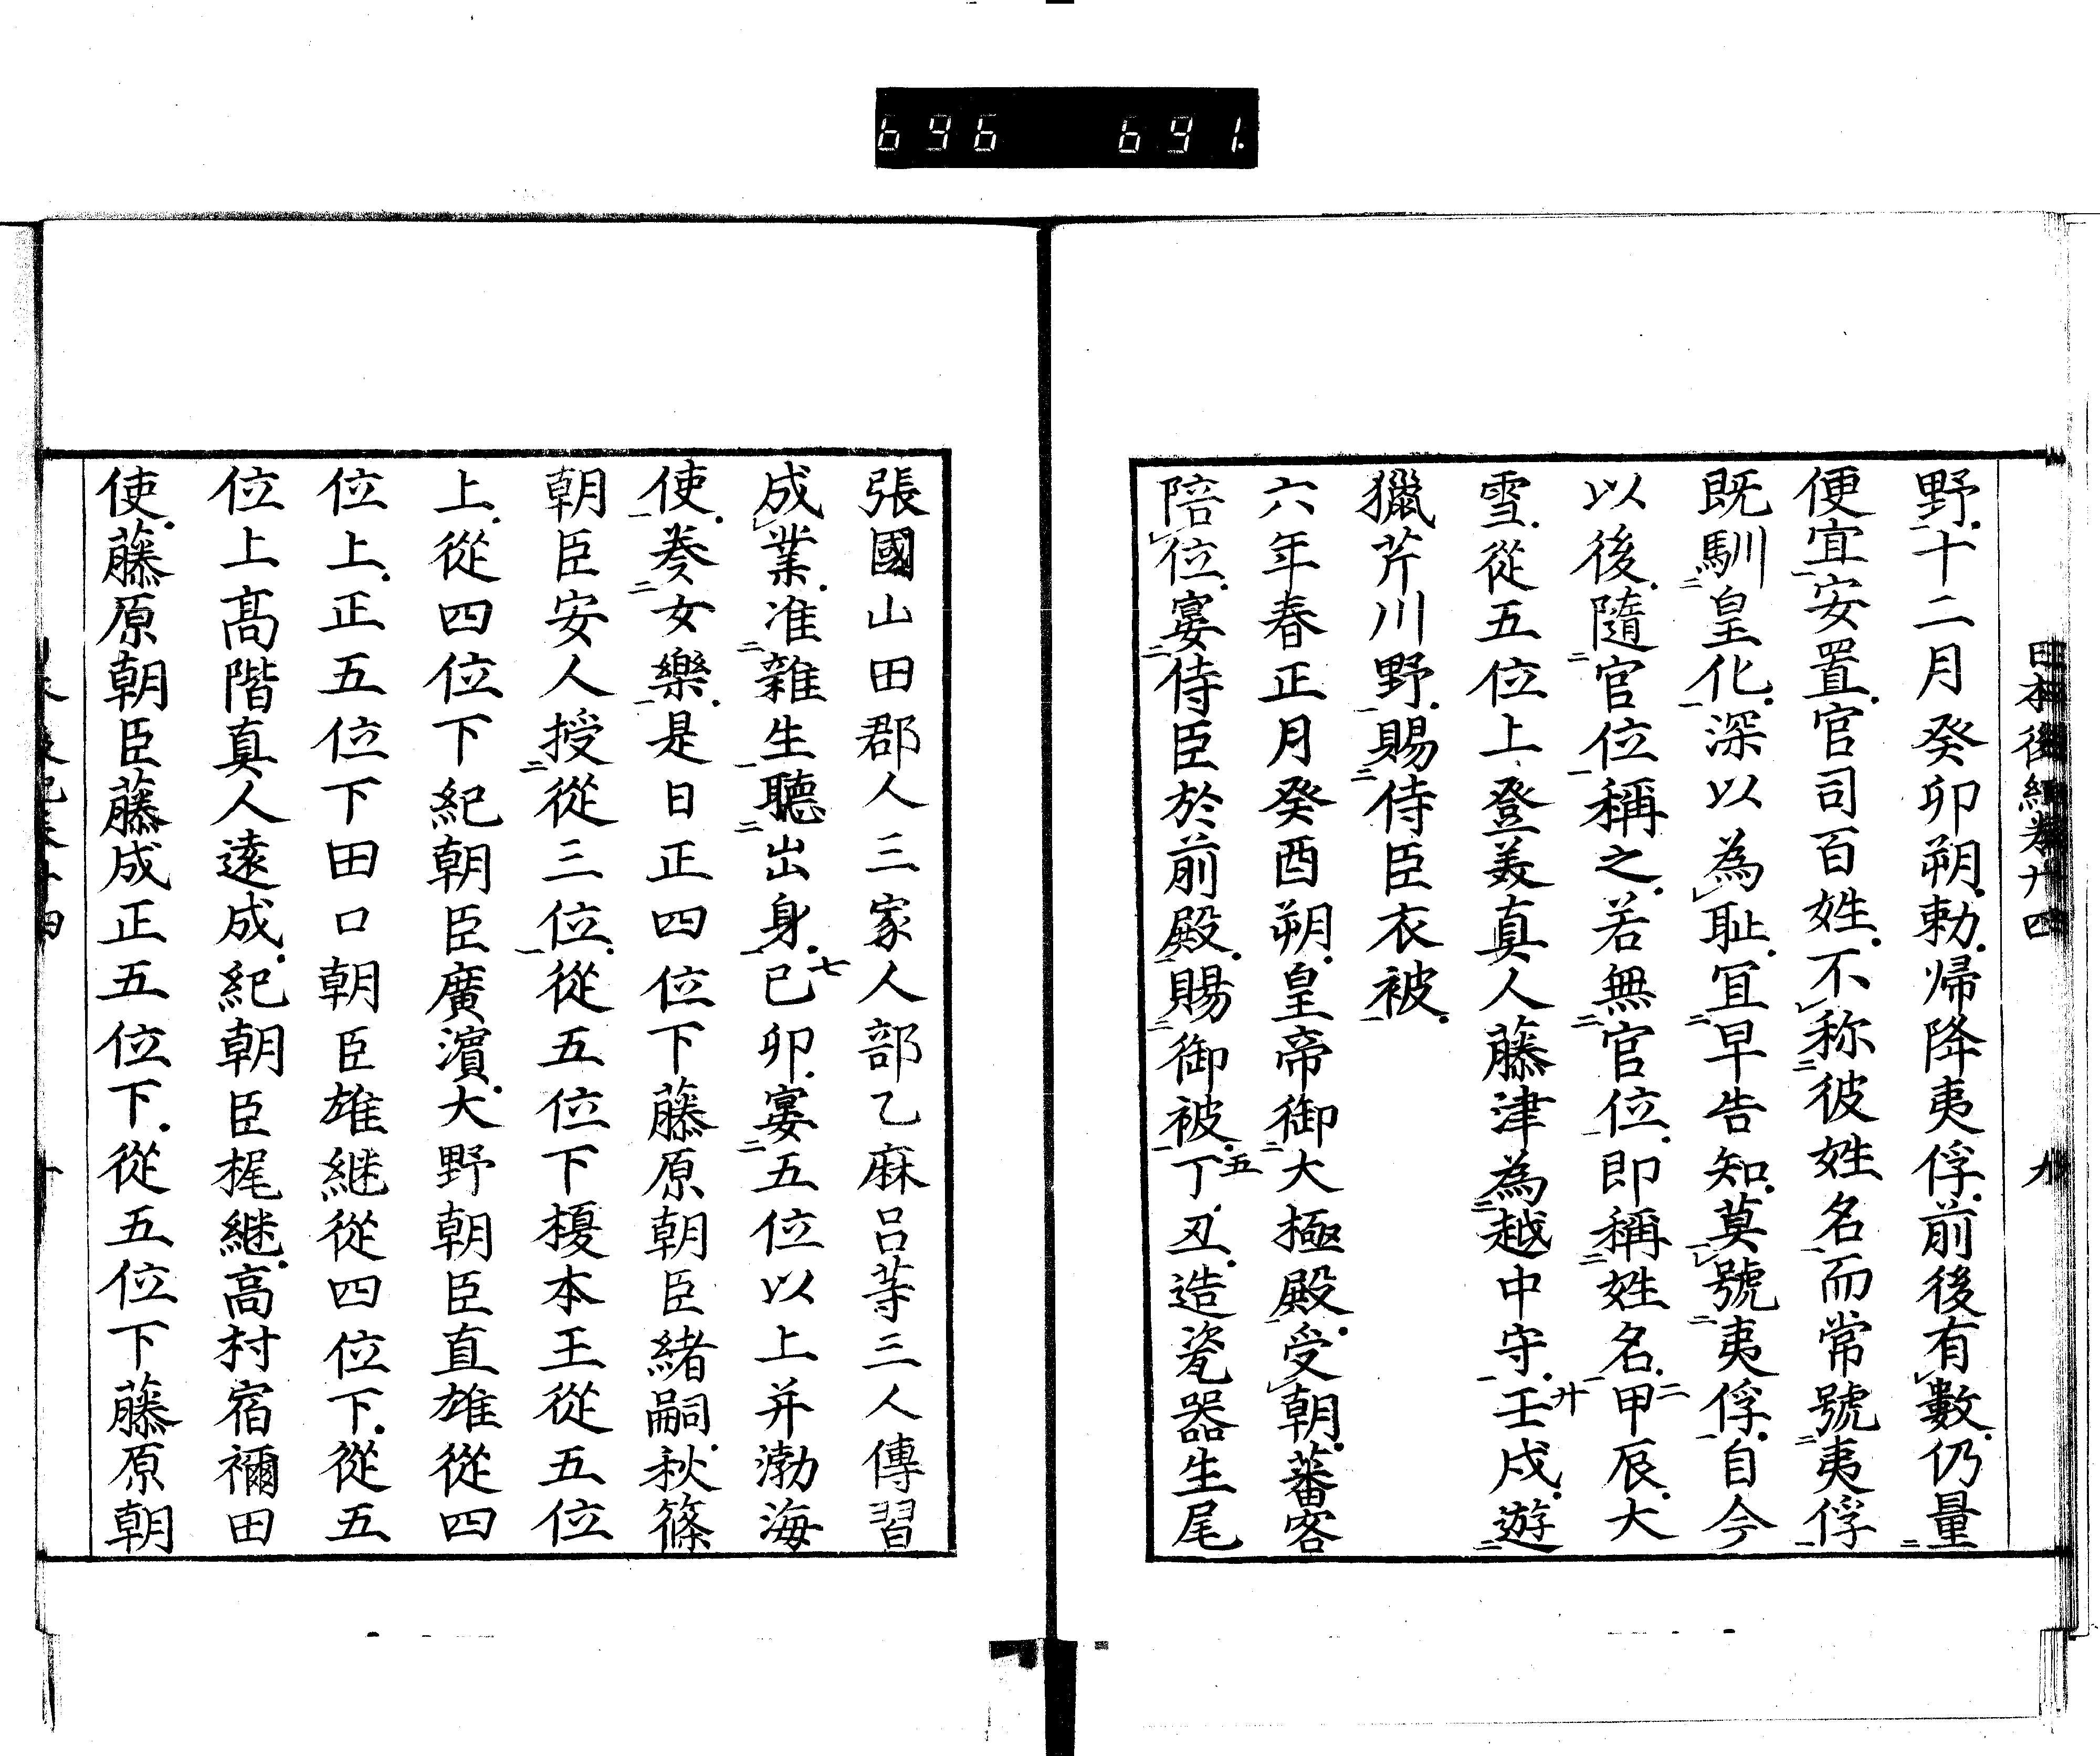 696 691.
日本後紀卷廿四
九
野十二月癸卯朔勅帰降夷俘前後有數仍量
便宜安置官司百姓不称彼姓名而常號夷俘
既馴皇化深以為耻冝早告知莫號夷俘自今
以後隨官位稱之若無官位即稱姓名甲二辰大
雪從五位上登美真人藤津為越中守壬廿戌遊
獵芹川野賜侍臣衣被
六年春正月癸酉朔皇帝御大極殿受朝蕃客
陪位宴侍臣於前殿賜御被丁五丑造瓷器生尾
張國山田郡人三家人部乙麻呂等三人傳習
成業准雜生聽出身己七卯宴五位以上并渤海
使奏女樂是日正四位下藤原朝臣緒嗣秋篠
朝臣安人授從三位從五位下榎本王從五位
上從四位下紀朝臣廣濱大野朝臣直雄從四
位上正五位下田口朝臣雄継從四位下從五
位上高階真人遠成紀朝臣梶継高村宿禰田
使藤原朝臣藤成正五位下從五位下藤原朝